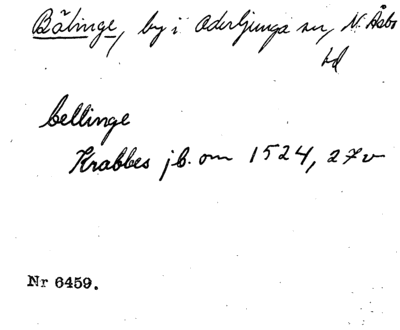 Bälinge, by i Oderljunga sn, N. Åsbo
hd
bellinge
Krabbes jb. om 1524, 27v
Nr 6459.